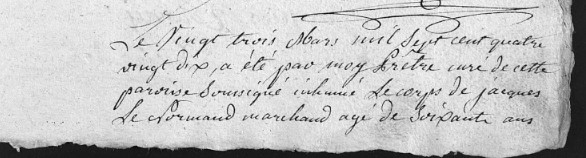 Le vingt trois Mars mil sept cent quatre
vingt dix a été par moy Prêtre curé de cette
paroisse soussigné inhumé Le corps de jacques
Le Normand marchand agé de soixante ans